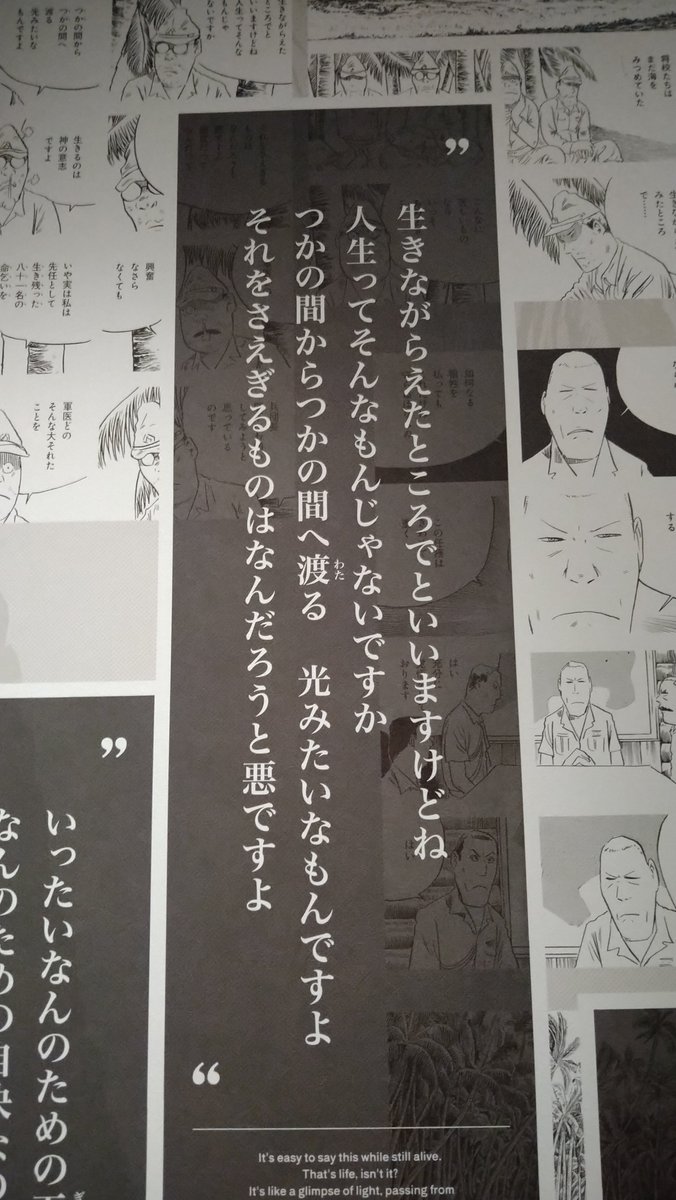 ”
生きながらえたところでといいますけどね
人生ってそんなもんじゃないですか
つかの間からつかの間へ渡る　光みたいなもんですよ
わた
それをさえぎるものはなんだろうと悪ですよ
“
It's easy to say this while still alive.
That's life, isn't it?
It's like a glimpse of light, passing from
”
いったいなんのための
なんのための自決
将校たちは
まだ海を
みつめていた
みたところ
で……
する
はい
はい
生きながらえた
ところでと
いいますけどね
人生ってそんな
もんじゃ
ないですか
つかの間から
つかの間へ
渡る
光みたいな
もんですよ
生きるのは
神の意志
ですよ
興奮
なさら
なくても
いや実は私は
先任として
生き残った
八十一名の
命乞いを
軍医どの
そんな大それた
ことを